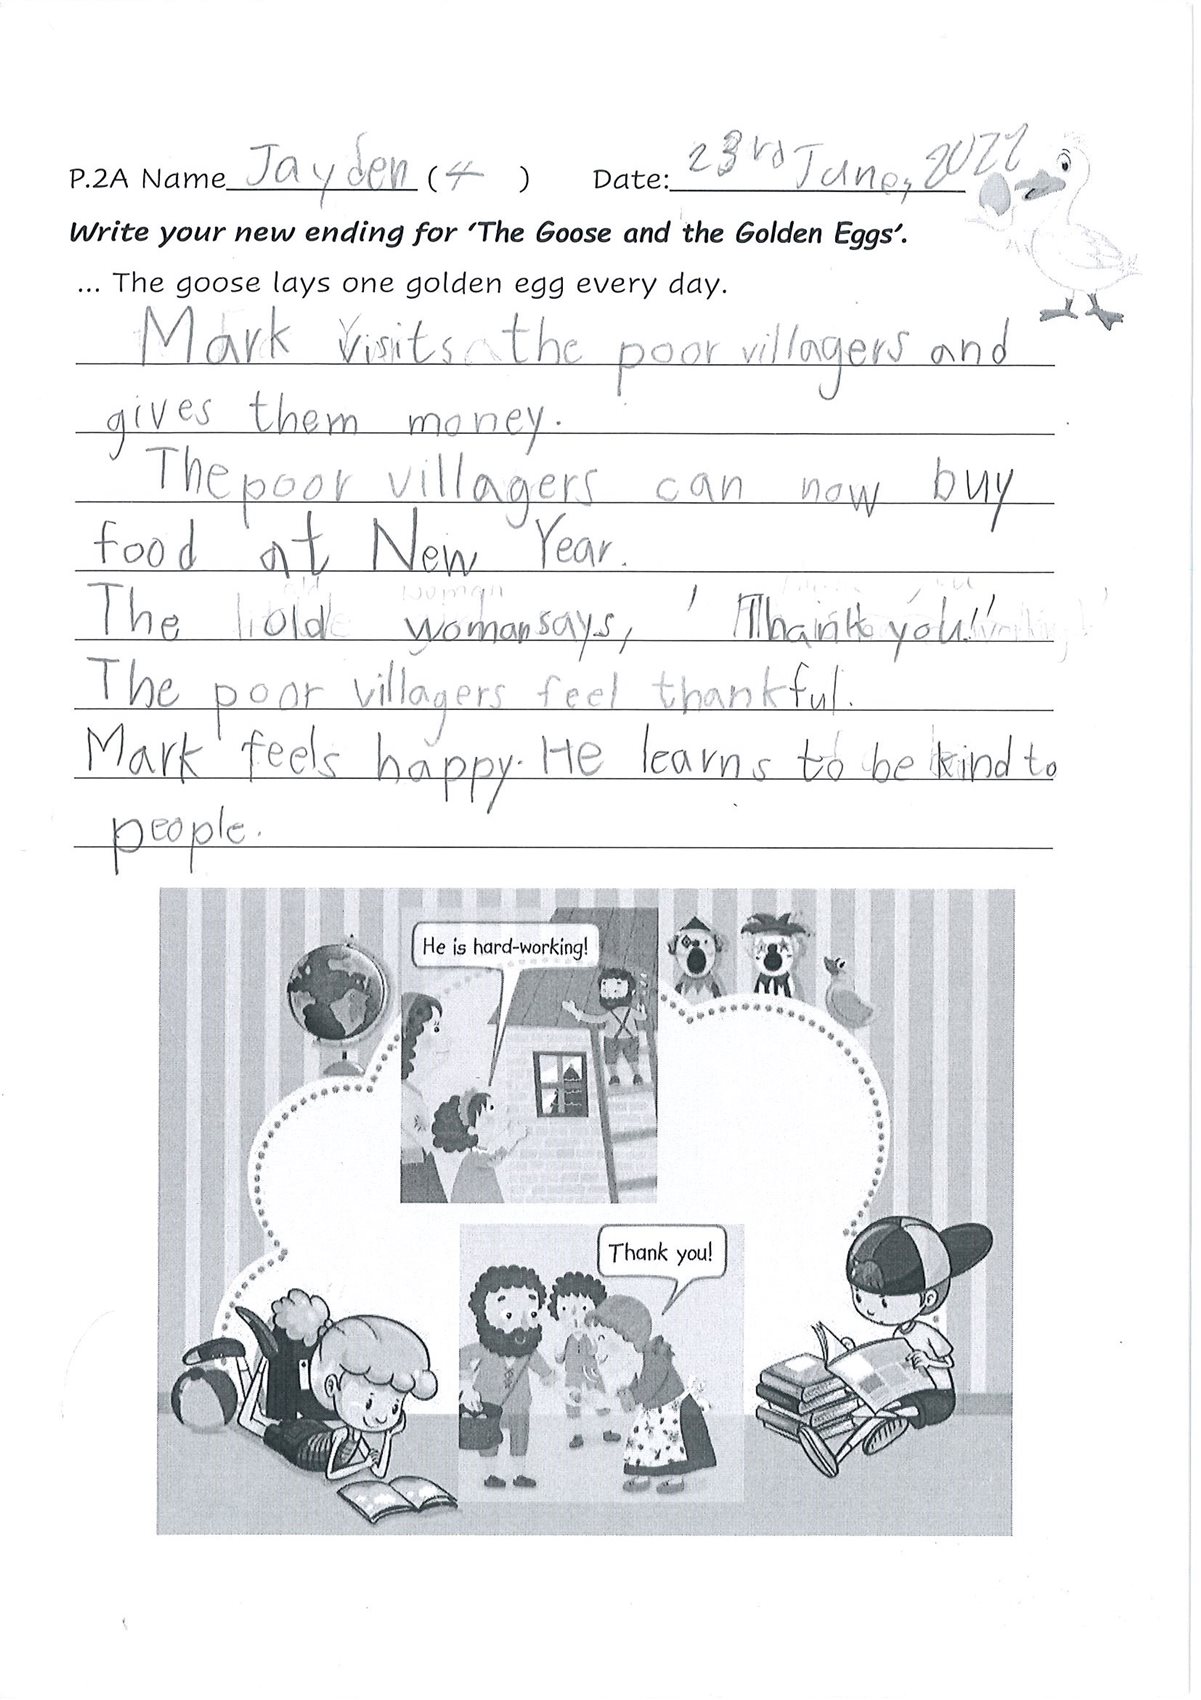 P.2A Name Jayden (4) Date: 23rd June, 2022
Write your new ending for 'The Goose and the Golden Eggs'.
... The goose lays one golden egg every day.
Mark visits the poor villagers and
gives them money.
The poor villagers can now buy
food at New Year.
The old woman says, 'Thank you!'
The poor villagers feel thankful.
Mark feels happy. He learns to be kind to
people.
He is hard-working!
Thank you!